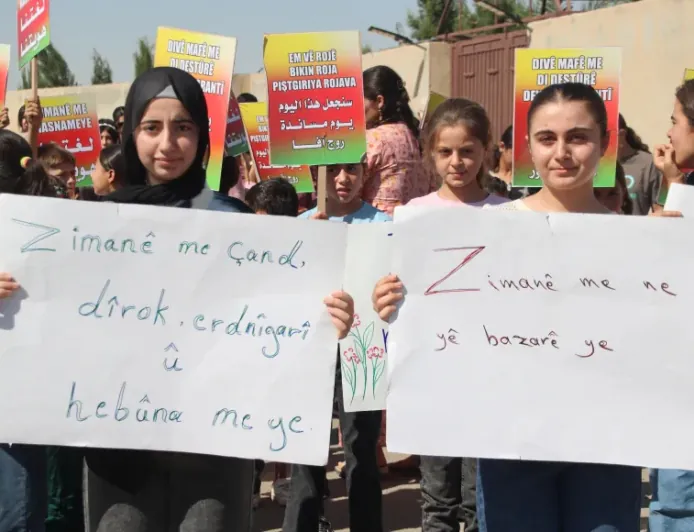 لغتنا
هويتنا
DIVÊ MAFÊ ME
DI DESTÛRÊ
EM VÊ ROJÊ
BIKIN ROJA
PIŞTGIRIYA ROJAVA
سنجعل هذا اليوم
يوم مساندة
روج آفا
DIVÊ MAFÊ ME
DI DESTÛRÊ
ME
NASNAMEYE
Zimanê me çand,
dîrok, erdnîgarî
û
hebûna me ye.
Zimanê me ne
yê bazarê ye